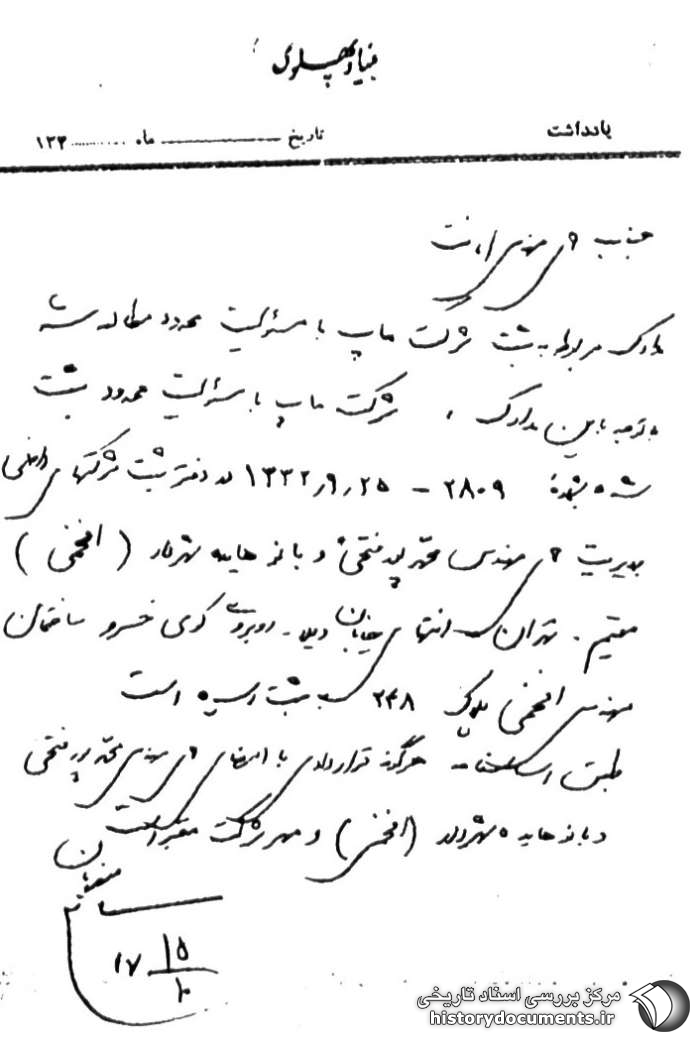 بنیاد پهلوی
یادداشت تاریخ ........ ماه ........ ۱۳۳
جناب آقای مهندس
مدارک مربوط به ثبت شرکت ماپ با مسئولیت محدود مطالعه شد
با توجه باین مدارک ، شرکت ماپ با مسئولیت محدود ثبت
شده بشماره ۲۸۰۹ – ۱۳۳۲٫۹٫۲۵ در دفتر ثبت شرکتهای داخلی
بمدیریت آقای مهندس محمد پورفتحی و بانو هایده شهردار ( افخمی )
مقیم . تهران انتهای خیابان ویلا - روبروی کوی خسرو ساختمان
مهندس افخمی پلاک ۲۴۸ به ثبت رسیده است
طبق اساسنامه هرگونه قراردادی با امضای آقای مهندس محمد پورفتحی
و بانو هایده شهردار (افخمی) و مهر شرکت معتبر است
۱۵/۲ ۱۷
مرکز بررسی اسناد تاریخی
historydocuments.ir